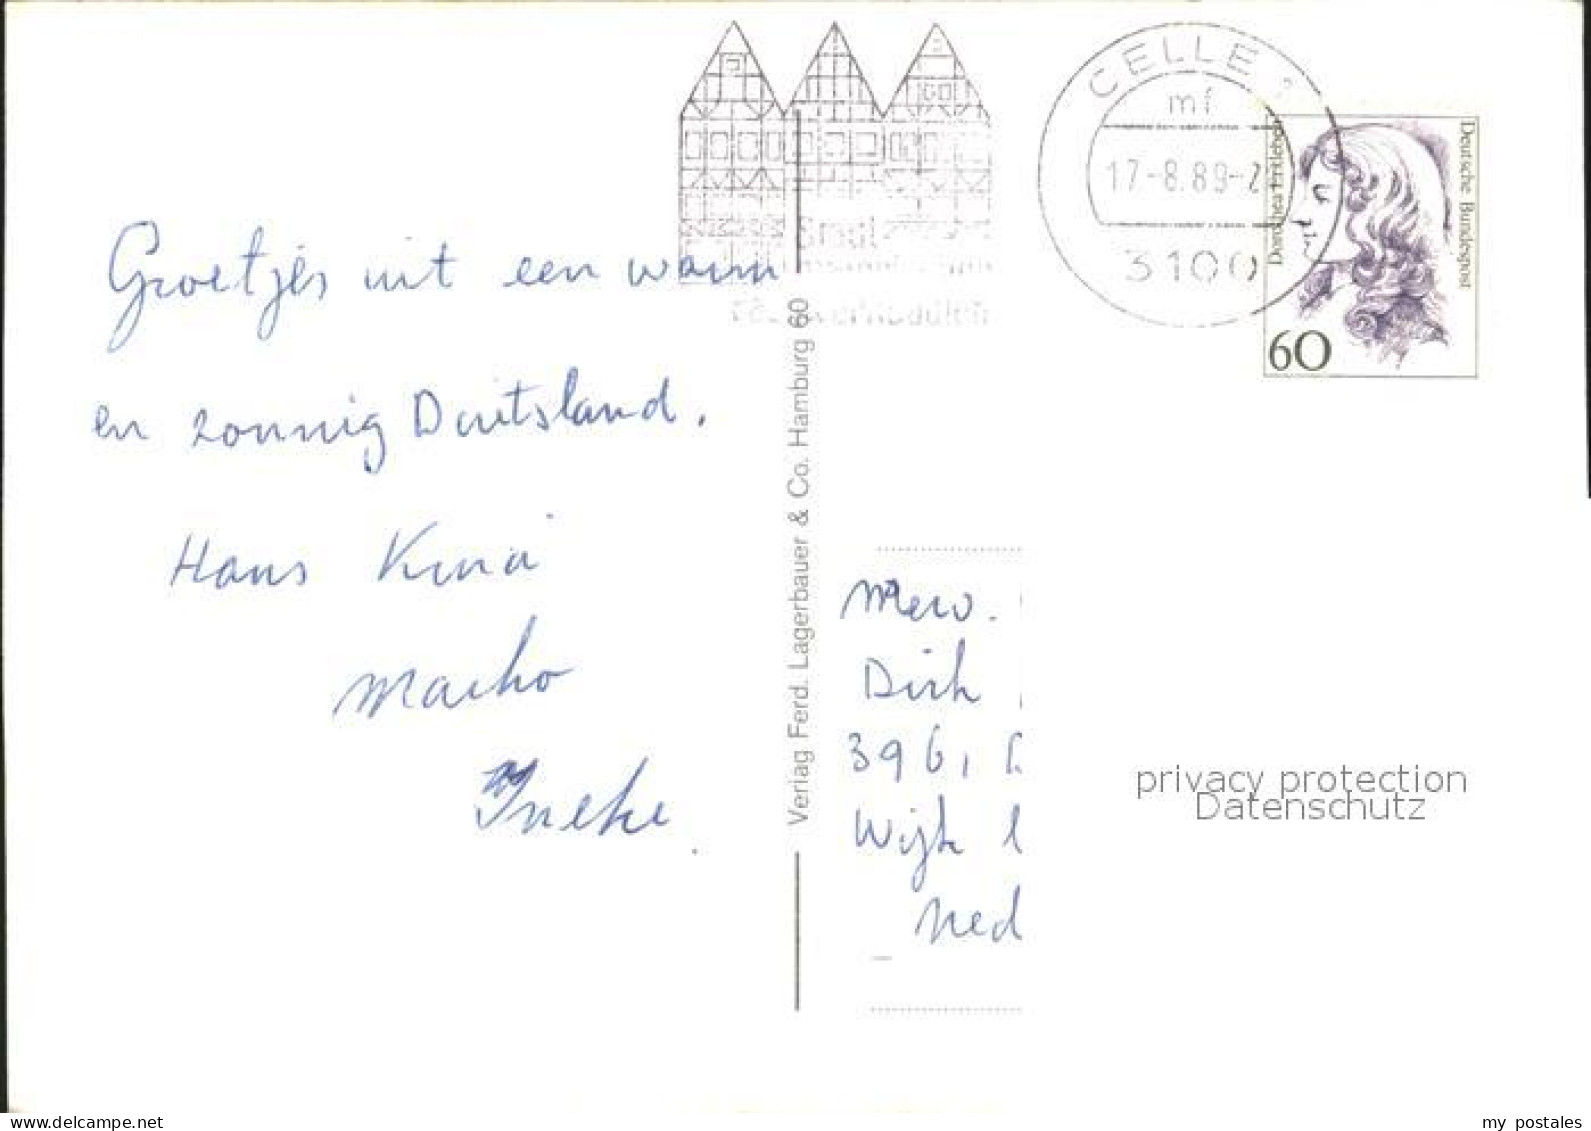 CELLE
mf
17-8.89-2
3100
Deutsche Bundespost
Dorothea Erxleben
60
Groetjes uit een warm
en zonnig Duitsland.
Hans
Marko
Ineke.
Verlag Ferd. Lagerbauer & Co. Hamburg 60
Mevr.
Dirk
3961
Wijk
Ned
privacy protection
Datenschutz
www.delcampe.net
my_postales